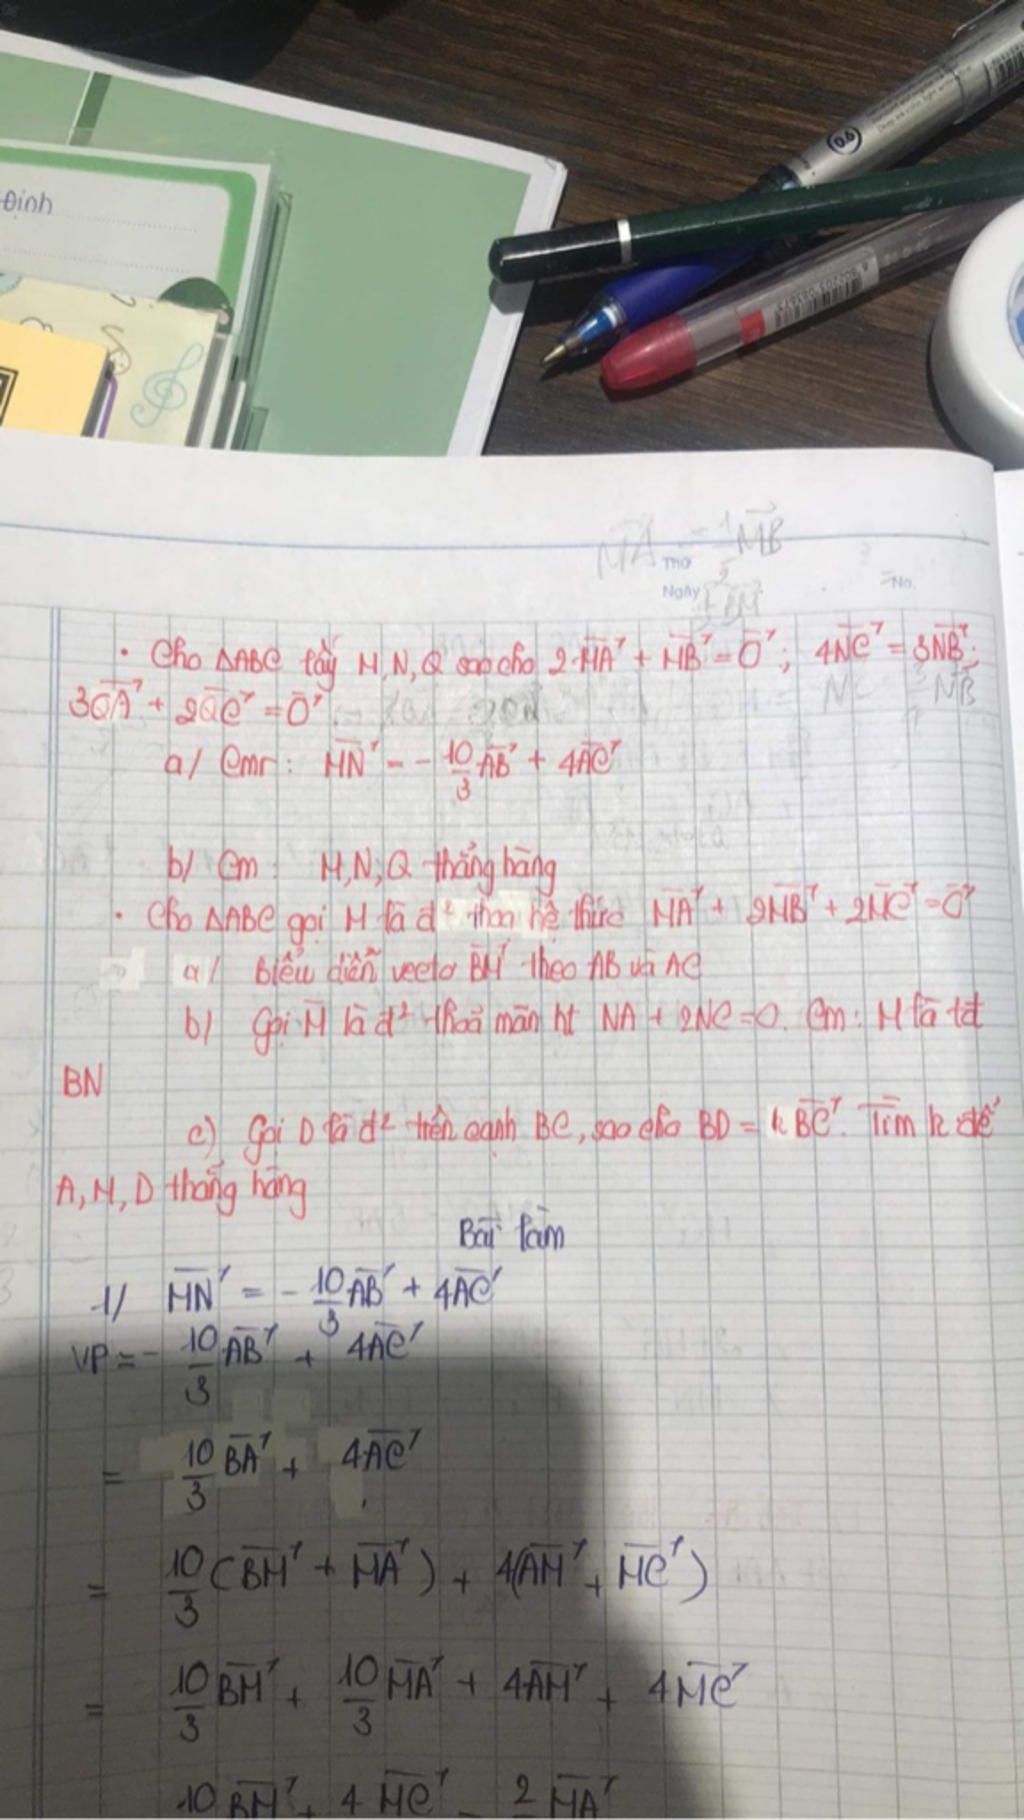 Định
0.6
MA = -1/2 MB
Thứ
Ngày
No.
BM
• Cho ΔABC lấy M, N, Q sao cho 2.MA⃗ + MB⃗ = O⃗ ; 4NC⃗ = 3NB⃗ ;
3QA⃗ + 2QC⃗ = O⃗
NC NB
a/ Cmr : MN⃗ = - 10/3 AB⃗ + 4AC⃗
b/ Cm : M, N, Q thẳng hàng
• Cho ΔABC gọi M là đ² thoa hệ thức MA⃗ + 2MB⃗ + 2MC⃗ = O⃗
a/ Biểu diễn vecto BM⃗ theo AB và AC
b/ Gọi N là đ² thoả mãn ht NA + 2NC = O. Cm : M là tđ
BN
c) Gọi D là đ² trên cạnh BC, sao cho BD = k BC⃗. Tìm k để
A, M, D thẳng hàng
Bài làm
1/ MN⃗ = - 10/3 AB⃗ + 4AC⃗
VP = - 10/3 AB⃗ + 4AC⃗
= 10/3 BA⃗ + 4AC⃗
= 10/3 (BM⃗ + MA⃗) + 4(AM⃗ + MC⃗)
= 10/3 BM⃗ + 10/3 MA⃗ + 4AM⃗ + 4MC⃗
10 BM⃗ + 4 MC⃗ - 2 MA⃗